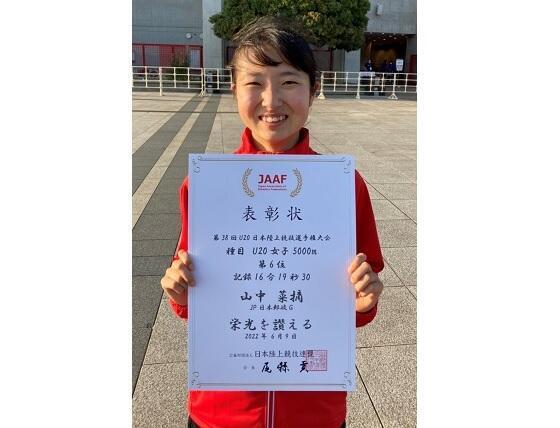 JAAF
Japan Association of
Athletics Federations
表彰状
第38回U20日本陸上競技選手権大会
種目 U20女子5000m
第6位
記録16分19秒30
山中 菜摘
JP日本郵政G
栄光を讃える
2022年6月9日
公益財団法人 日本陸上競技連盟
会長 尾縣 貢